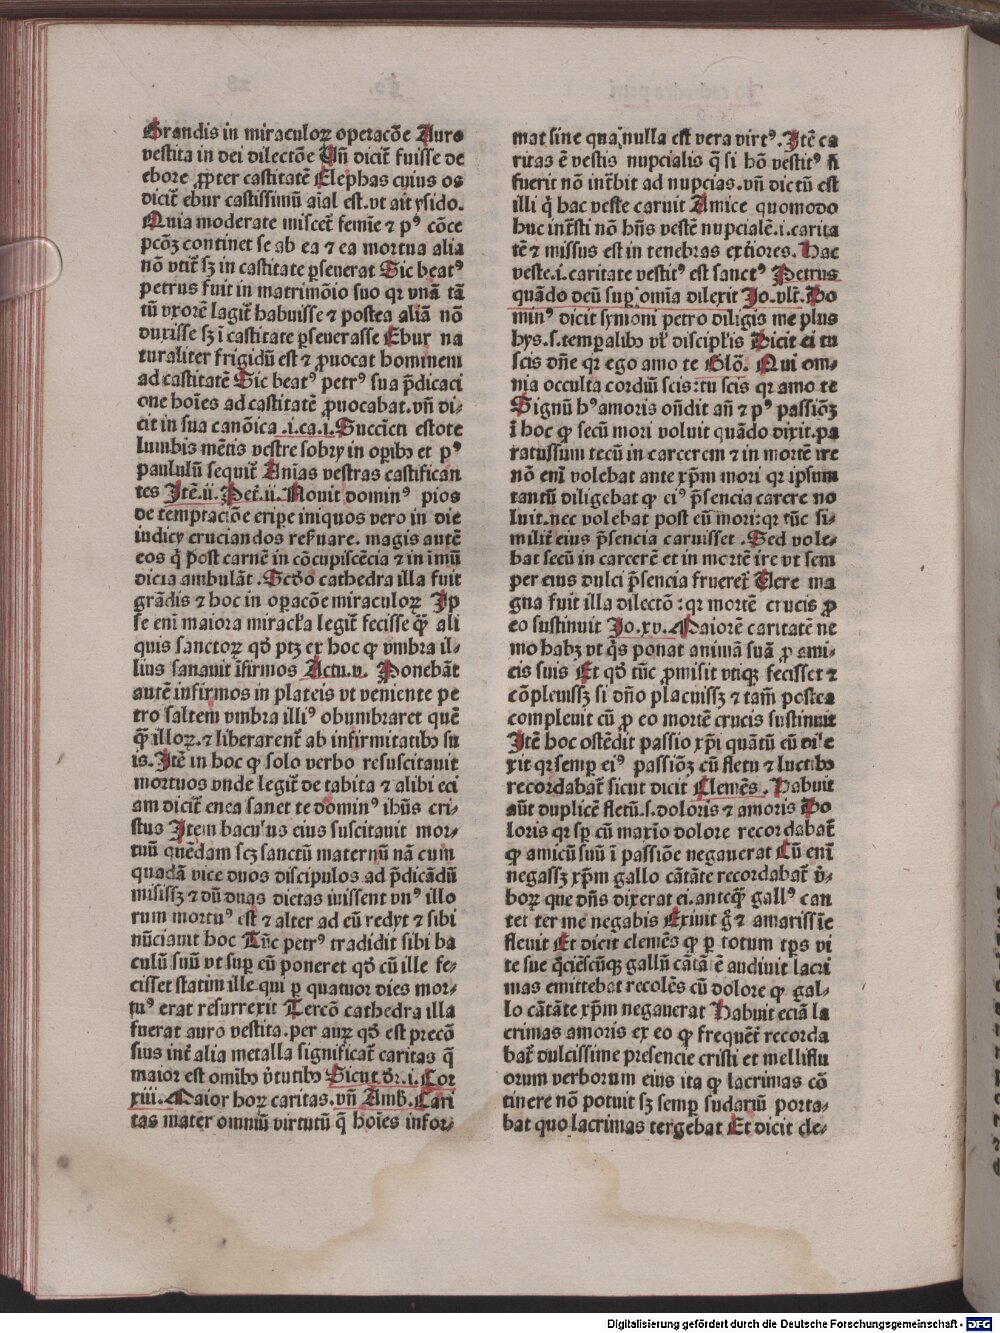 Grandis in miraculoꝝ operacōe Auro
vestita in dei dilectōe Vn̄ dicit᷑ fuisse de
ebore ꝓpter castitatē Elephas cuius os
dicit᷑ ebur castissimū aīal est. vt ait ysido.
Quia moderate miscet᷑ femīe ⁊ pꝰ cōce
pcōꝫ continet se ab ea ⁊ ea mortua alia
nō vtit᷑ sꝫ in castitate ꝑseuerat Sic beatꝰ
petrus fuit in matrimōio suo qꝛ vnā tā
tū vxorē legit᷑ habuisse ⁊ postea aliā nō
duxisse sꝫ ī castitate ꝑseuerasse Ebur na
turaliter frigidū est ⁊ ꝓuocat hominem
ad castitatē Sic beatꝰ petrꝰ sua p̄dicaci
one hoīes ad castitatē ꝓuocabat. vn̄ di⸗
cit in sua canōica .i. ca. i. Succīcti estote
lumbis mētis vestre sobry in oꝑibꝫ et pꝰ
paululū sequit᷑ Anīas vestras castifican
tes Itē. ii. Pet᷑. ii. Nouit dominꝰ pios
de temptaciōe eripe iniquos vero in die
iudicy cruciandos reẜuare. magis autē
eos q̄ post carnē in cōcupiscēcia ⁊ in īmū
dicia ambulāt. Scd̄o cathedra illa fuit
grādis ⁊ hoc in oꝑacōe miraculoꝝ Ip
se eni maiora miracl̄a legit᷑ fecisse q̄ꝫ ali
quis sanctoꝝ qd̄ ptꝫ ex hoc ꝙ vmbra il⸗
lius sanauit īfirmos Actu. v. Ponebāt
autē infirmos in plateis vt veniente pe
tro saltem vmbra illiꝰ obumbraret quē
q̄ꝫ illoꝝ. ⁊ liberarent᷑ ab infirmitatibꝫ su
is. Itē in hoc ꝙ solo verbo resuscitauit
mortuos vnde legit᷑ de tabita ⁊ alibi eci
am dicit᷑ enea sanet te dominꝰ ihūs cri⸗
stus Item baculus eius suscitauit mor⸗
tuū quēdam scꝫ sanctū maternū nā cum
quadā vice duos discipulos ad p̄dicādū
misissꝫ ⁊ dū duas dietas iuissent vnꝰ illo
rum mortuꝰ est ⁊ alter ad eū redyt ⁊ sibi
nūciauit hoc Tūc petrꝰ tradidit sibi ba
culū suū vt suꝑ eū poneret qd̄ cū ille fe⸗
cisset statim ille qui ꝑ quatuor dies mor⸗
tuꝰ erat resurrexit Tercō cathedra illa
fuerat auro vestita. per auꝝ qd̄ est precō
sius int᷑ alia metalla significat᷑ caritas q̄
maior est omībꝫ v̓tutibꝫ Sicut dr̄. i. Cor
xiii. Maior hoꝝ caritas. vn̄ Amb̄. Cari
tas mater omniū virtutū q̄ hoīes infor⸗
mat sine qua nulla est vera virtꝰ. Itē ca
ritas ē vestis nupcialis q̄ si hō vestitꝰ n̄
fuerit nō int᷑bit ad nupcias. vn̄ dictū est
illi q̄ hac veste caruit Amice quomodo
huc int᷑sti nō hn̄s vestē nupcialē .i. carita
tē ⁊ missus est in tenebras ext᷑iores. Hac
veste .i. caritate vestitꝰ est sanctꝰ Petrus
quādo deū suꝑ omīa dilexit Jo. vlt᷑. Do
minꝰ dicit symoni petro diligis me plus
hys. s. temꝑalibꝫ vl̄ discipl̄is Dicit ei tu
scis dn̄e qꝛ ego amo te Glō. Qui om⸗
nia occulta cordiū scis: tu scis qꝛ amo te
Signū hꝰ amoris on̄dit an̄ ⁊ pꝰ passiōꝫ
ī hoc ꝙ secū mori voluit quādo dixit. pa
ratussum tecū in carcerem ⁊ in mortē ire
nō enī volebat ante xp̄m mori qꝛ ipsum
tantū diligebat ꝙ eiꝰ p̄sencia carere no
luit. nec volebat post eū mori: qꝛ tūc si⸗
milit᷑ eius p̄sencia caruisset. Sed vole⸗
bat secū in carcerē et in mortē ire vt sem
per eius dulci p̄sencia frueret᷑ Vere ma
gna fuit illa dilectō: qꝛ mortē crucis ꝓ
eo sustinuit Jo. xv. Maiorē caritatē ne
mo habꝫ vt q̄s ponat animā suā ꝓ ami⸗
cis suis Et qd̄ tūc ꝓmisit vtiqꝫ fecisset ⁊
cōpleuissꝫ si dn̄o placuissꝫ ⁊ tam̄ postea
compleuit cū ꝓ eo mortē crucis sustinuit
Itē hoc ostēdit passio xp̄i quātū eū dile
xit qꝛ semꝑ eiꝰ passiōꝫ cū fletu ⁊ luctibꝫ
recordabat᷑ sicut dicit Clemēs. Habuit
aūt duplicē fletū. s. doloris ⁊ amoris Do
loris qꝛ sꝑ cū maxīo dolore recordabat᷑
ꝙ amicū suū ī passiōe negauerat Cū enī
negassꝫ xp̄m gallo cātāte recordabat᷑ v̓⸗
boꝝ que dn̄s dixerat ei. anteq̄ꝫ gallꝰ can
tet ter me negabis Exiuit g̊ ⁊ amarissīe
fleuit Et dicit clemēs ꝙ ꝑ totum tp̄s vi
te sue q̄ciēscūqꝫ gallū cātātē audiuit lacri
mas emittebat recolēs cū dolore ꝙ gal⸗
lo cātāte xp̄m negauerat Habuit eciā la
crimas amoris ex eo ꝙ frequēt᷑ recorda
bat᷑ dulcissime presencie cristi et melliflu
orum verborum eius ita ꝙ lacrimas cō
tinere nō potuit sꝫ semꝑ sudariū porta⸗
bat quo lacrimas tergebat Et dicit cle⸗
Digitalisierung gefördert durch die Deutsche Forschungsgemeinschaft - DFG